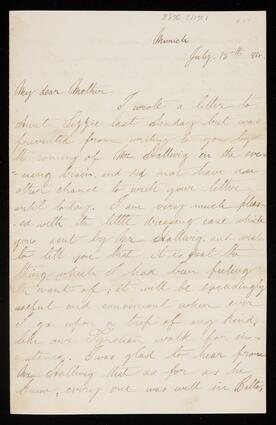 Munich
July 15th 84.
My dear Mother
I wrote a letter to
Aunt Lizzie last Sunday but was
prevented from writing to you by
the coming of Mr Hallwig in the eve-
ning train, and did not have an
other chance to write your letter
until today. I am very much pleas-
ed with the little dressing case which
you sent by Mr Hallwig, and wish
to tell you that it is just the
thing which I had been feeling
the want of; it will be exceedingly
useful and convenient when ever
I go upon a trip of any kind,
like our Tyrolean walk for in-
stance. I was glad to hear from
Mr Hallwig that as far as he
knew, every one was well in Balto,